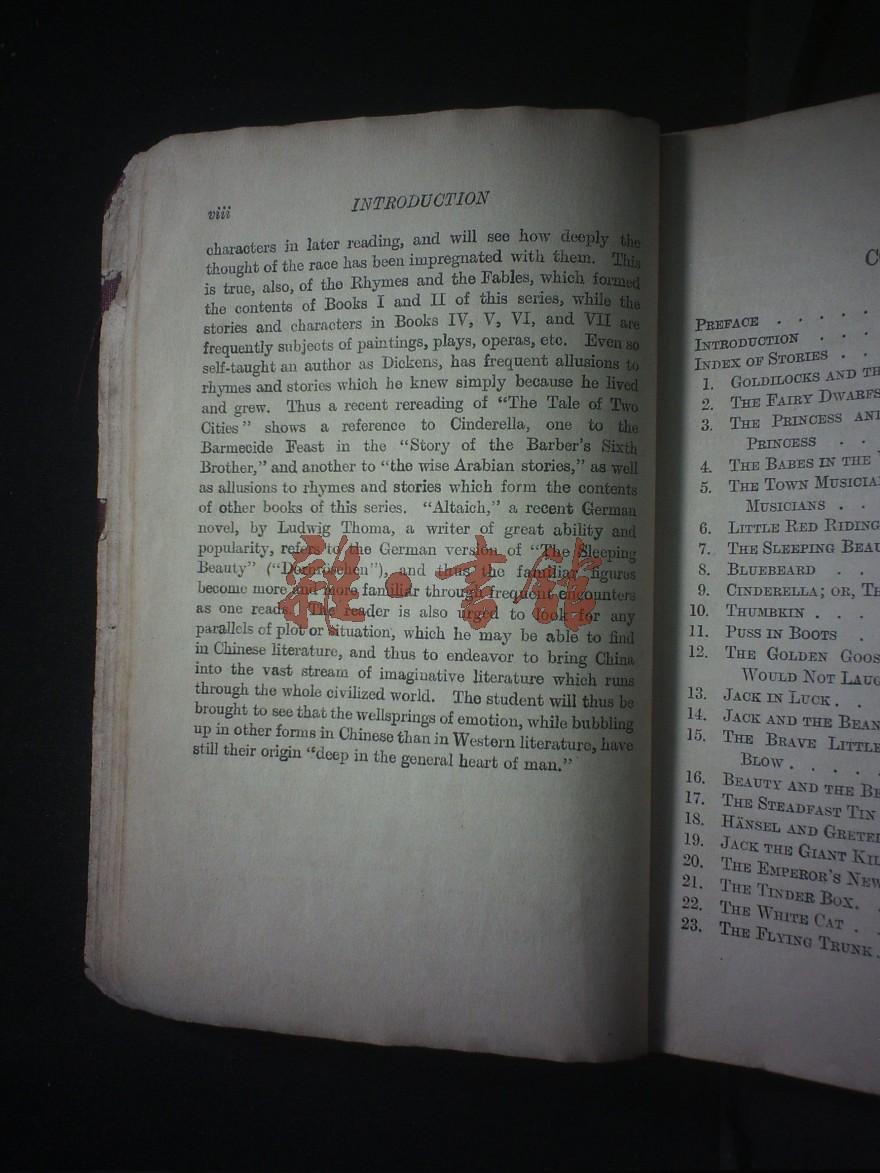 viii
INTRODUCTION
characters in later reading, and will see how deeply the
thought of the race has been impregnated with them. This
is true, also, of the Rhymes and the Fables, which formed
the contents of Books I and II of this series, while the
stories and characters in Books IV, V, VI, and VII are
frequently subjects of paintings, plays, operas, etc. Even so
self-taught an author as Dickens, has frequent allusions to
rhymes and stories which he knew simply because he lived
and grew. Thus a recent rereading of “The Tale of Two
Cities” shows a reference to Cinderella, one to the
Barmecide Feast in the “Story of the Barber's Sixth
Brother,” and another to “the wise Arabian stories,” as well
as allusions to rhymes and stories which form the contents
of other books of this series. “Altaich,” a recent German
novel, by Ludwig Thoma, a writer of great ability and
popularity, refers to the German version of “The Sleeping
Beauty” (“Dornröschen”), and thus the familiar figures
become more and more familiar through frequent encounters
as one reads. The reader is also urged to look for any
parallels of plot or situation, which he may be able to find
in Chinese literature, and thus to endeavor to bring China
into the vast stream of imaginative literature which runs
through the whole civilized world. The student will thus be
brought to see that the wellsprings of emotion, while bubbling
up in other forms in Chinese than in Western literature, have
still their origin “deep in the general heart of man.”
PREFACE . . . . .
INTRODUCTION . . .
INDEX OF STORIES . .
1. GOLDILOCKS AND TH
2. THE FAIRY DWARFS
3. THE PRINCESS AND
PRINCESS . .
4. THE BABES IN THE
5. THE TOWN MUSICIA
MUSICIANS . .
6. LITTLE RED RIDING
7. THE SLEEPING BEAU
8. BLUEBEARD . .
9. CINDERELLA; OR, TH
10. THUMBKIN . . .
11. PUSS IN BOOTS .
12. THE GOLDEN GOOS
WOULD NOT LAUG
13. JACK IN LUCK . .
14. JACK AND THE BEAN
15. THE BRAVE LITTLE
BLOW . . . . .
16. BEAUTY AND THE BE
17. THE STEADFAST TIN
18. HÄNSEL AND GRETEL
19. JACK THE GIANT KIL
20. THE EMPEROR'S NEW
21. THE TINDER BOX. .
22. THE WHITE CAT . .
23. THE FLYING TRUNK .